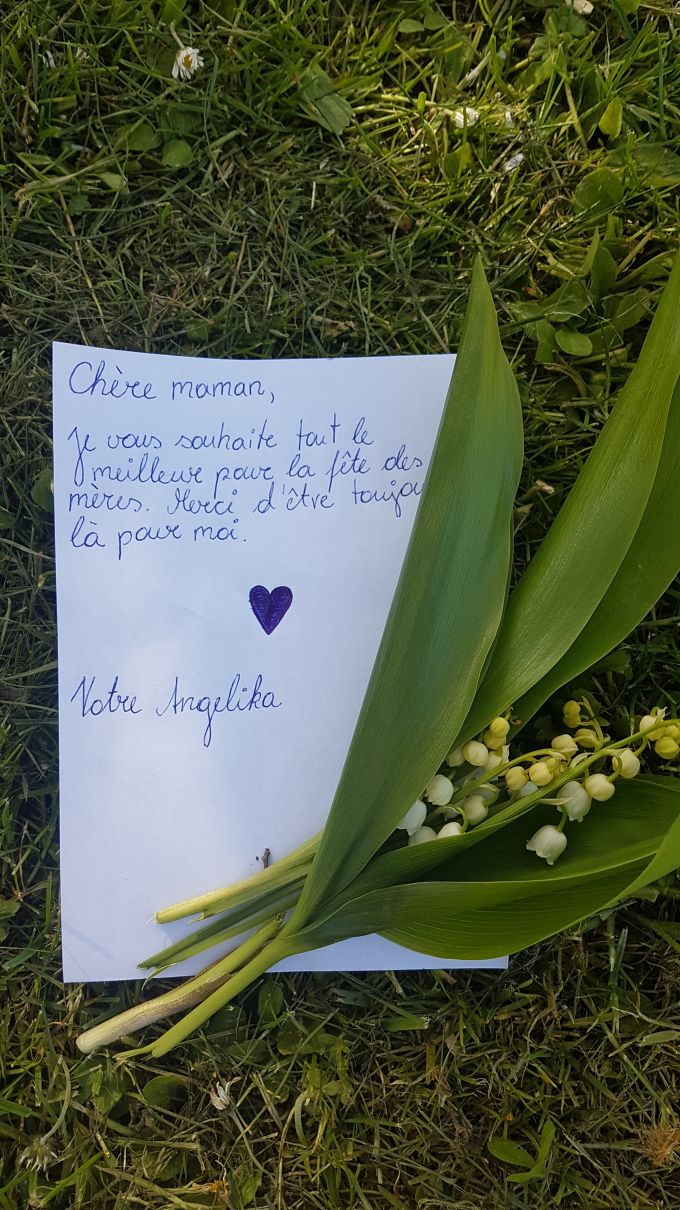 Chère maman,
Je vous souhaite tout le
meilleur pour la fête des
mères. Merci d'être toujou
là pour moi.
Votre Angelika